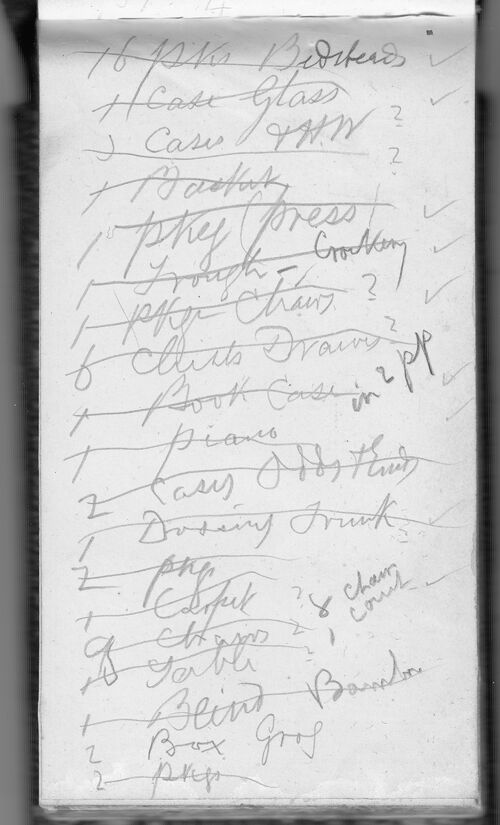 16 pkts Bedsteads ✓
1 Case Glass ✓
2 Cases ?
1 Basket ?
1 pkg (press) ✓
1 Trough - Crockery ✓
1 pkge Chairs ? ✓
6 Chests Drawers ?
1 Book Case in 2 pp ✓
1 piano ✓
2 Cases Odds & Ends
1 Trunk ✓
2 pkgs
1 Carpet ?
8 Chairs ? 8 chairs count ✓
1 Table ? 1
1 Blind Bamboo
2 Box Grog
2 pkgs